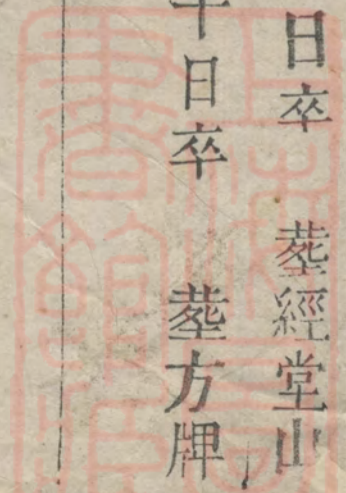 日卒 塟經堂山
十日卒 塟方牌